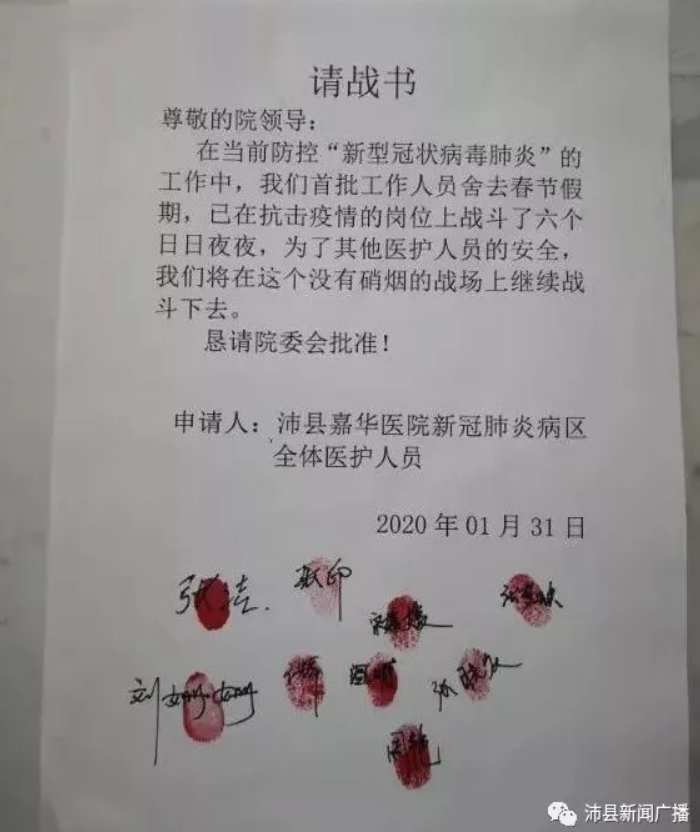 请战书
尊敬的院领导：
在当前防控“新型冠状病毒肺炎”的
工作中，我们首批工作人员舍去春节假
期，已在抗击疫情的岗位上战斗了六个
日日夜夜，为了其他医护人员的安全，
我们将在这个没有硝烟的战场上继续战
斗下去。
恳请院委会批准！
申请人：沛县嘉华医院新冠肺炎病区
全体医护人员
2020 年 01 月 31 日
刘姗姗
沛县新闻广播